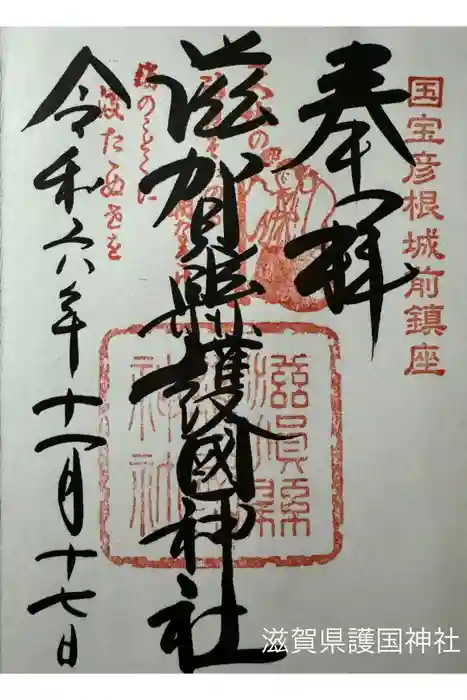 国宝彦根城前鎮座
奉拝
滋賀縣護國神社
令和六年十一月十七日
滋賀縣
神社
滋賀県護国神社